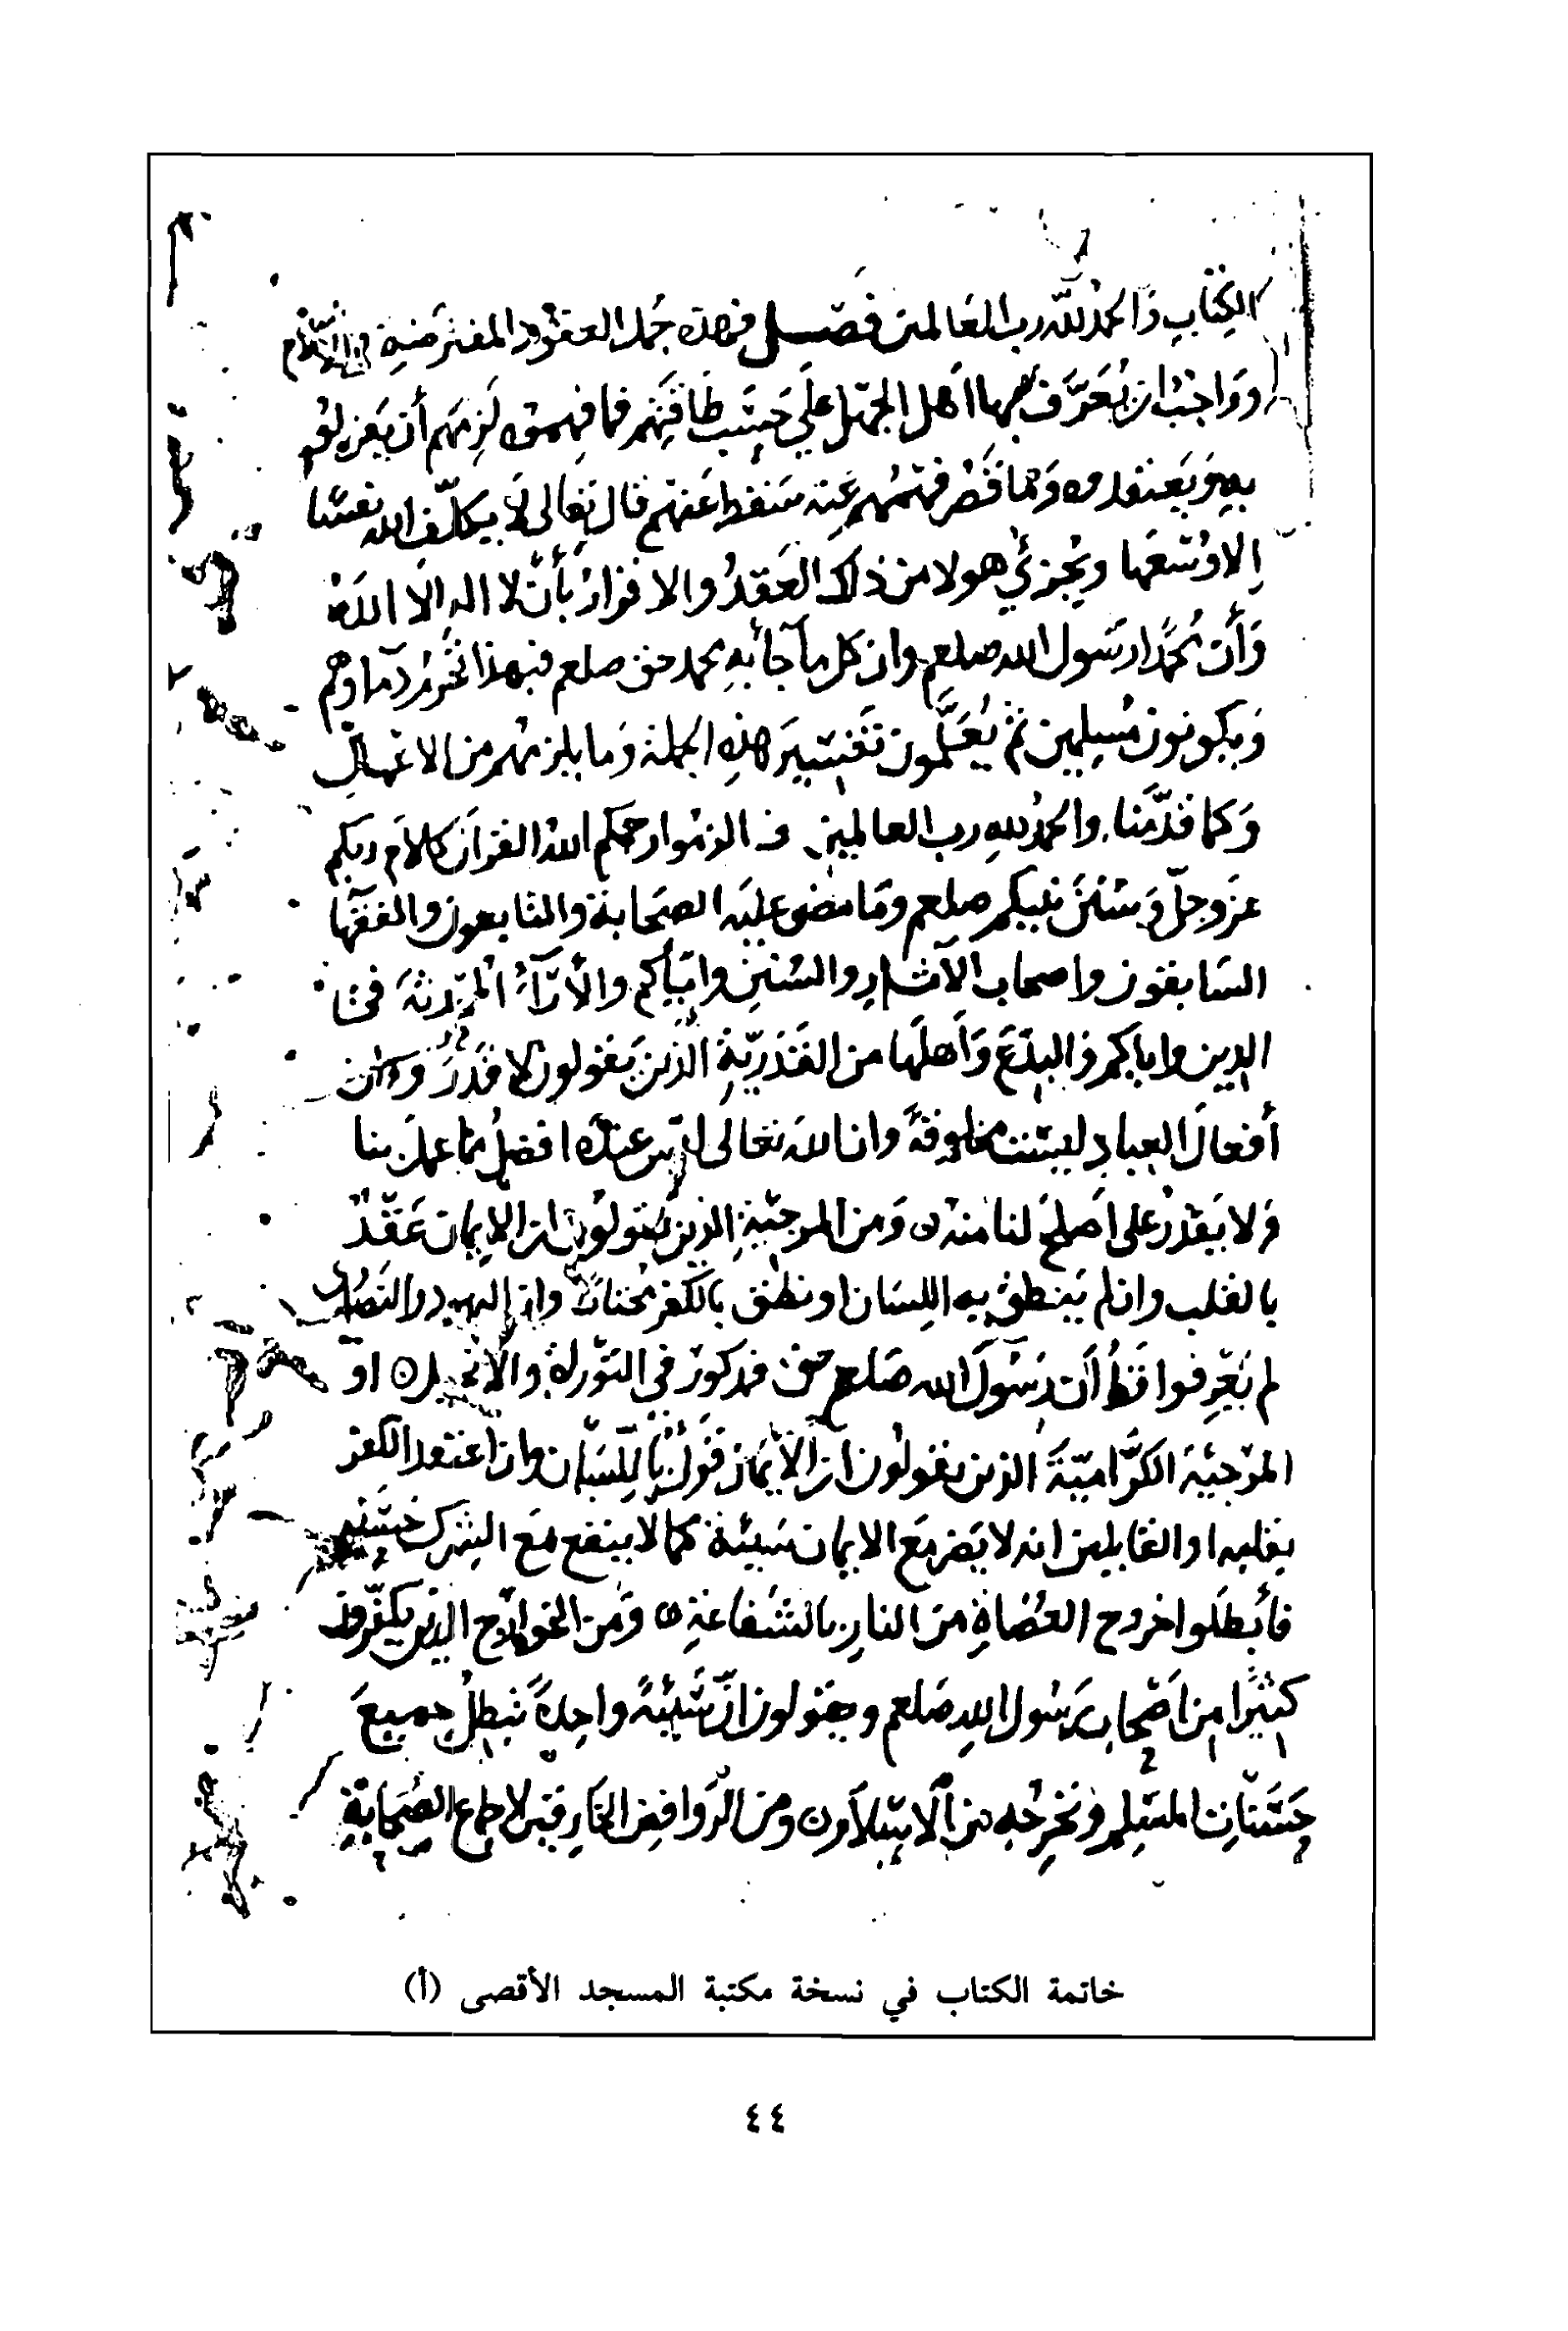 الكِتَابِ وَالحمدُ للَّه رب العَالمين فصّل فهذه جُمل العقود المفترضَة في الإسلام
وَوَاجبٌ ان يُعَرَّف بها اهل الجهل علَى حَسَب طَاقتهم فما فهموه لَزمَهم أن يَقروا
به وَيَعتقدوه وَمَا قَصُر فهمُهم عنه سَقط عَنهم قال تعَالى لَا يكلّف الله نفسًا
إلا وُسْعَها ويُجزئ هولا من ذلك العَقدُ والاقرارُ بأن لا اله الا اللهُ
وَأن مُحمَّدا رسَول الله صلعم وان كل ما جَا به محمد حق صلعم فبهذا تَحْرُمُ دمَاوهم
وَيكونون مُسلمين ثم يُعَلَّمون تَفسيرَ هذه الجملة وَما يلزمهم من الاعمال
وَكما قدّمنَا والحمدُ لله رب العالمين فالزموا رحمكم اللهُ القرآن كلاَم ربكم
عزَّ وجلّ وَسُنَنَ نبيكم صلعم وَمَا مضى عليه الصحَابة والتابعون والفقهَا
السَابقون واصحاب الآثار والسُنن وايّاكم والأرَآءَ المحدثةَ في
الدين واياكم والبِدَعَ وَأهلَها من القَدَريّةِ الذين يَقولون لا قدَرَ وان
أفعالَ العِبادِ ليسَت مخلوقةً وان الله تعَالى ليس عنده افضلُ مما عمل بنا
وَلا يَقدرُ على أصلحَ لنا منه ۞ وَمن المرجئة الذين يَقولون ان الإيمان عَقْدٌ
بالقلب وان لم يَنطق به اللسَان او نطق بالكفر وان اليهود والنصَارى
لم يَعْرِفوا قط أن رَسُولَ الله صَلعم حق مذكورٌ في التوراة والانجيل ۞ او
المرجئة الكَرَّاميَّةَ الذين يقولون ان الإيمَان قَولٌ باللّسَان وان اعتقد الكفر
بقلبه او القايلين انه لا يَضر مَع الايمان سَيئة كما لا ينفع مَع الشرك حَسَنة
فأبطَلوا خروج العُصَاةِ مِنَ النارِ بالشفاعَة ۞ وَمن الخوارج الذين يكفّرون
كثيرًا من أصْحاب رَسُول الله صَلعم ويقولون انَّ سَيّئةً واحِدةً تُبطلُ جميعَ
حَسَنَاتِ المسْلم وتُخرجُه من الاسْلام ۞ ومن الرّوَافض الخارقين لإجماع الصَّحَابة
خاتمة الكتاب في نسخة مكتبة المسجد الأقصى (أ)
٤٤